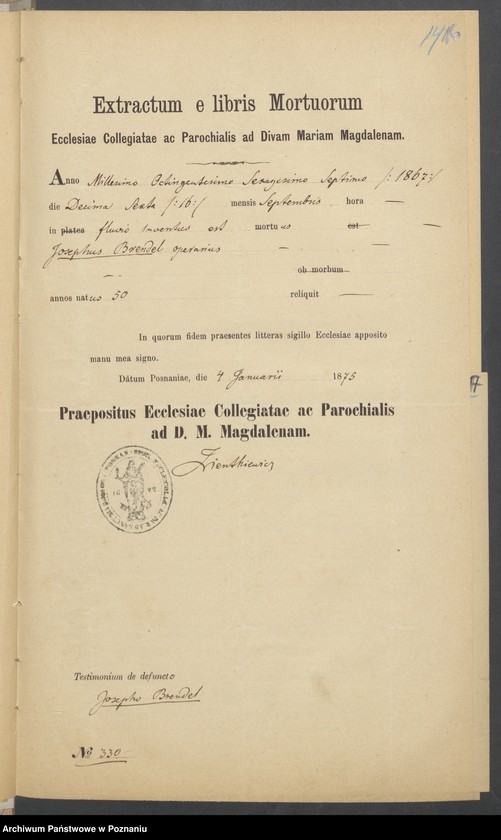 Extractum e libris Mortuorum
Ecclesiae Collegiatae ac Parochialis ad Divam Mariam Magdalenam.
Anno Millesimo Octingentesimo Sexagesimo Septimo /: 1867 :/
die Decima Sexta /: 16 :/ mensis Septembris hora —
in platea fluvio inventus est mortuus est —
Josephus Brendel operarius — —
— ob morbum
annos natus 50 reliquit —
In quorum fidem praesentes litteras sigillo Ecclesiae apposito
manu mea signo.
Datum Posnaniae, die 4 Januarii 1875
A
Praepositus Ecclesiae Collegiatae ac Parochialis
ad D. M. Magdalenam.
Zientkiewicz
Testimonium de defuncto
Josepho Brendel
№ 330
Archiwum Państwowe w Poznaniu